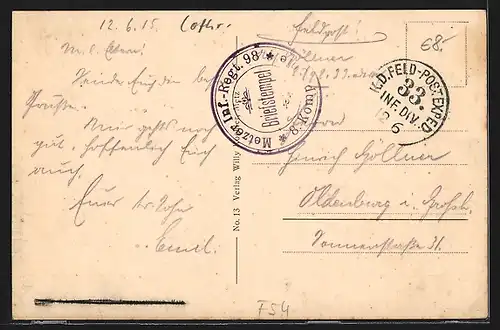 12.6.15. Lothr.
M. l. Eltern!
Sende Euch die besten
Grüße.
Mir gehts noch
gut. Hoffentlich Euch
auch.
Euer tr. Sohn
Emil.
Feldpost!
€8.-
Metzer Inf.-Regt. 98 * 8. Komp. *
Briefstempel
K.D. FELD-POSTEXPED.
33.
INF. DIV.
12 6
Hinrich Göllner
Oldenburg i. Großh.
Sonnenstraße 31.
No. 13 Verlag Willy
FS4